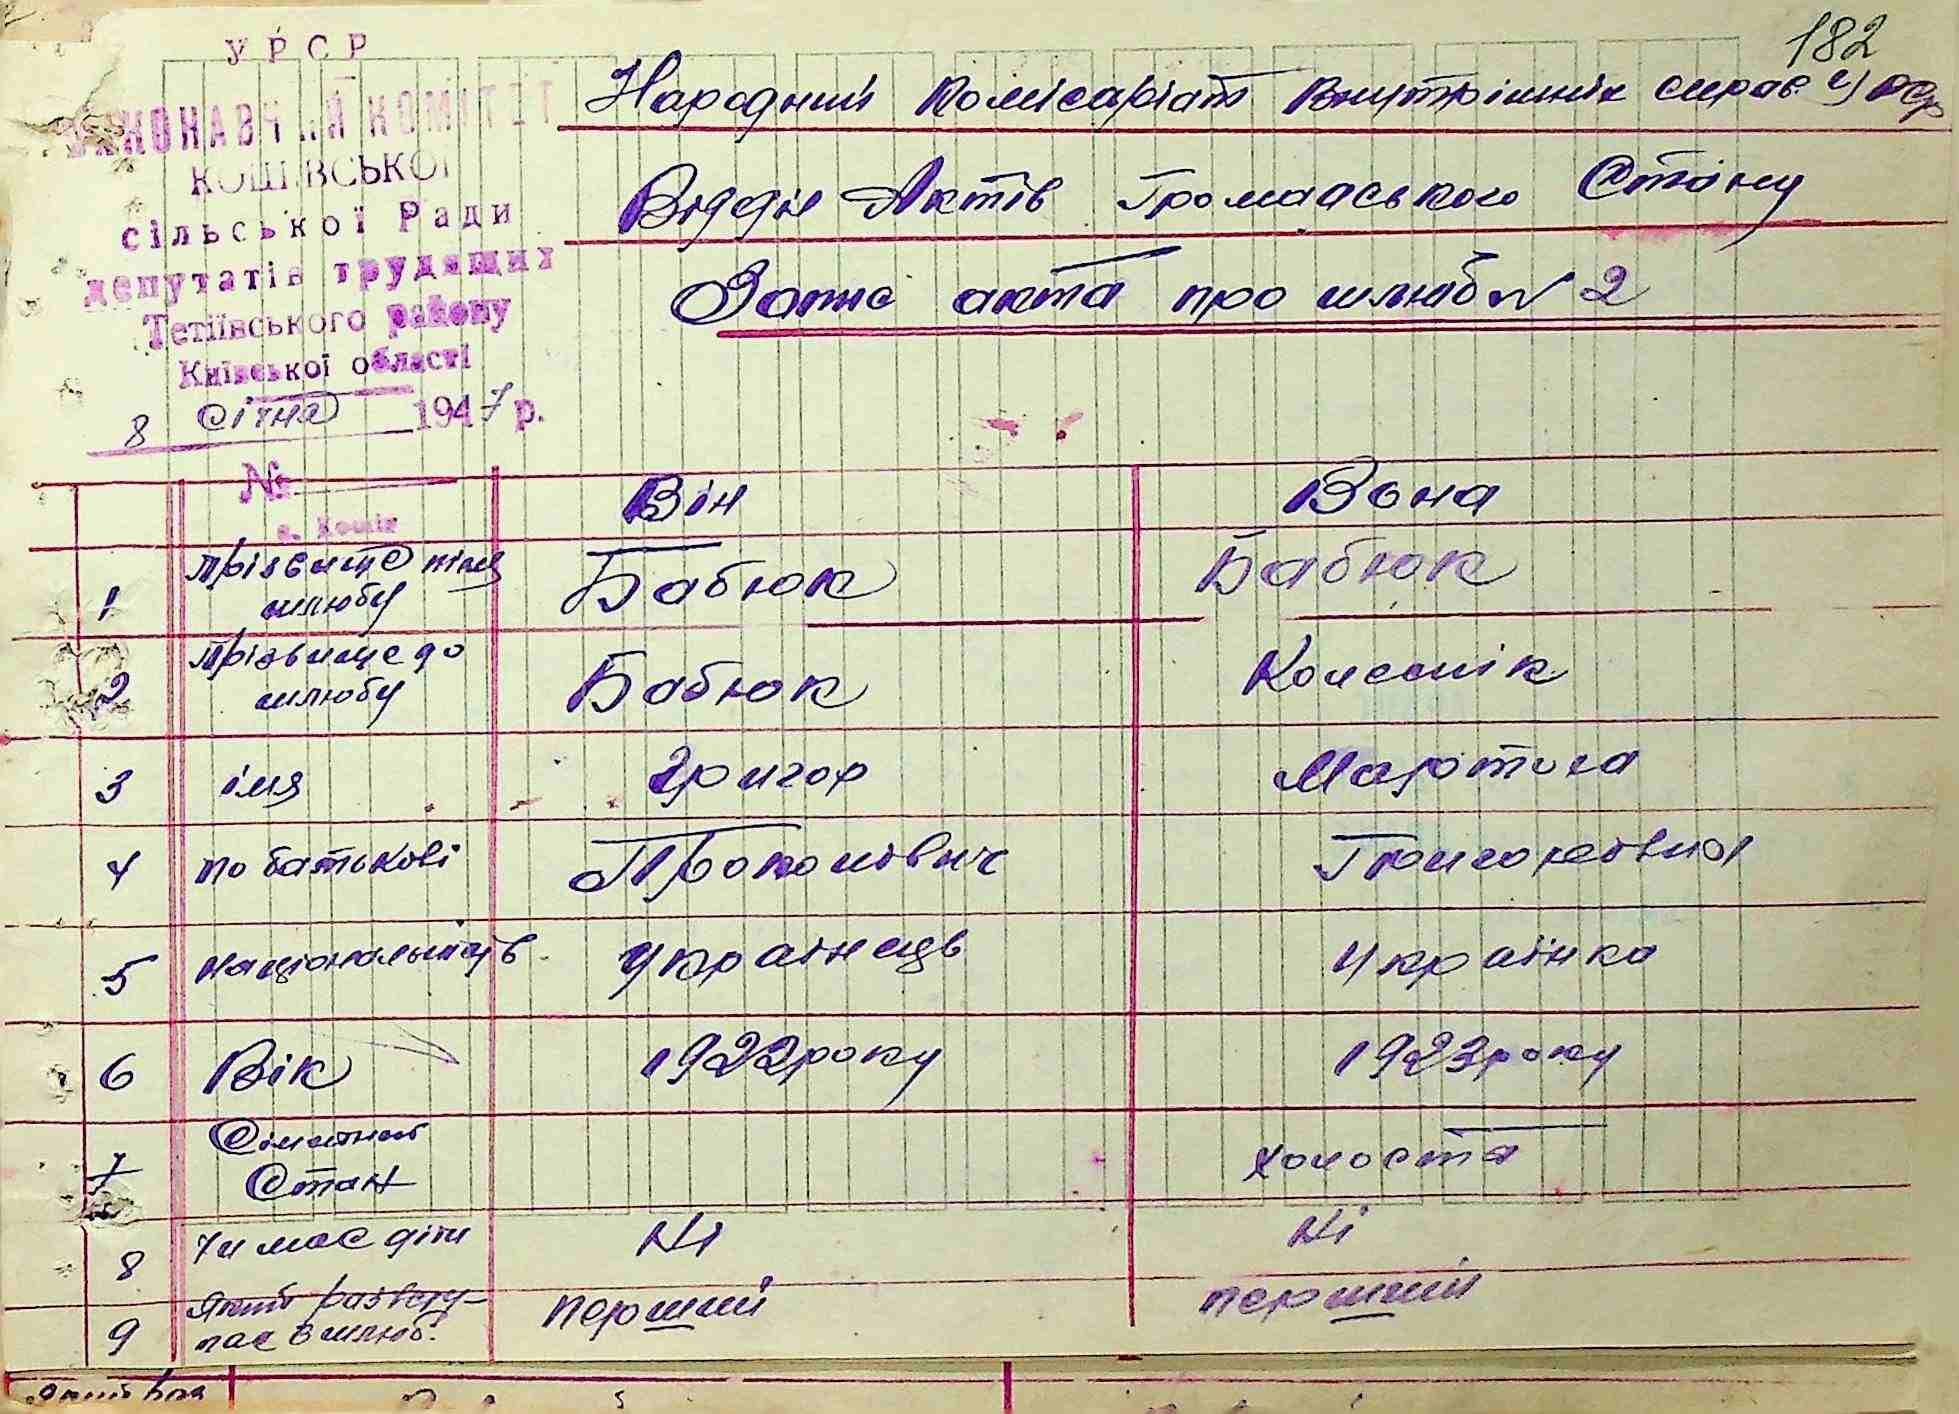 182
УРСР
ВИКОНАВЧИЙ КОМІТЕТ
КОШІВСЬКОЇ
сільської Ради
депутатів трудящих
Тетіївського району
Київської області
8 січня 1947 р.
№
с. Кошів
Народний Комісаріат Внутрішніх справ УРСР
Відділ Актів Громадського Стану
Запис акта про шлюб № 2
Він Вона
1 Прізвище після шлюбу Бабюк Бабюк
2 Прізвище до шлюбу Бабюк Колеснік
3 імя Григор Мартоха
4 по батькові Прокопович Григоровна
5 національність Українець Українка
6 Вік 1922 року 1923 року
7 Сімейний Стан холоста
8 Чи має діти Ні Ні
9 Який раз вступає в шлюб. перший перший